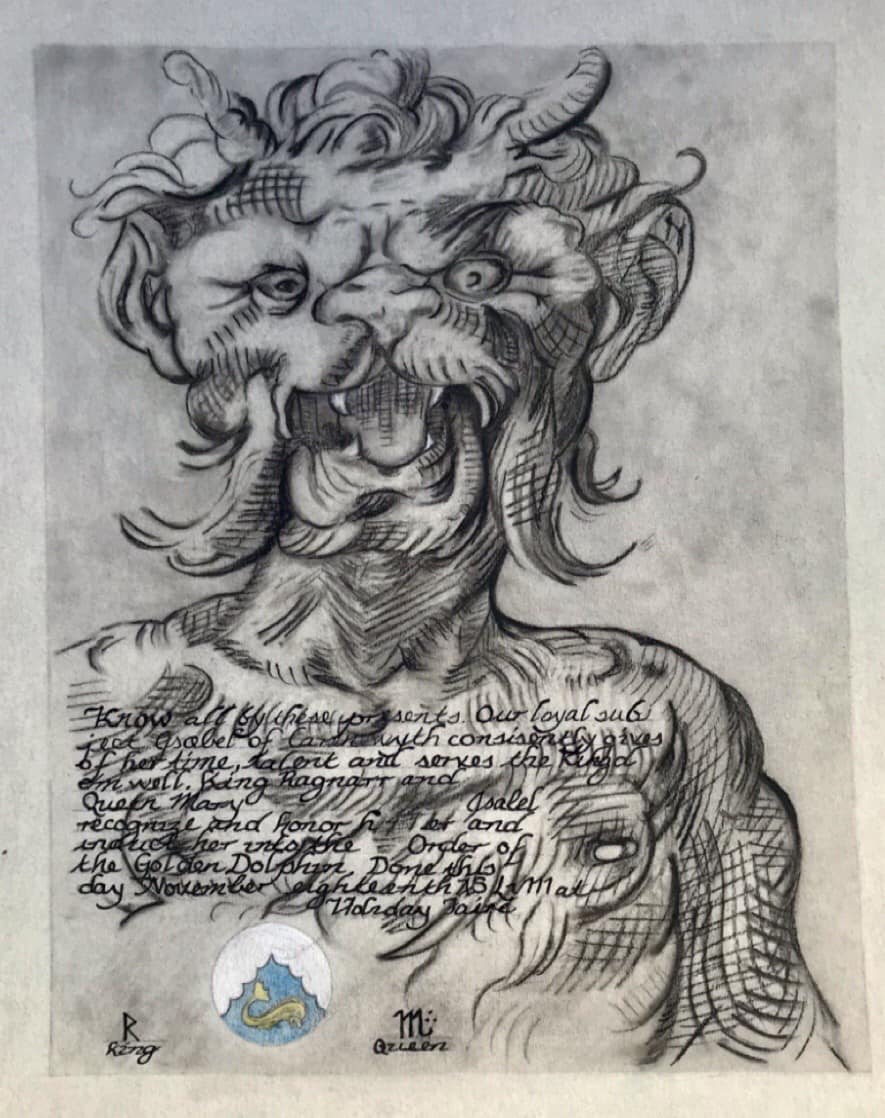 Know all by these presents. Our loyal sub
ject Isabel of            consisently gives
of her time, talent and serves the Kingd
om well. King Ragnarr and
Queen Mary Isabel
recognize and honor her and
induct her into the Order of
the Golden Dolphin Done this
day November eighteenth at
Holiday Faire
R
King
M
Queen